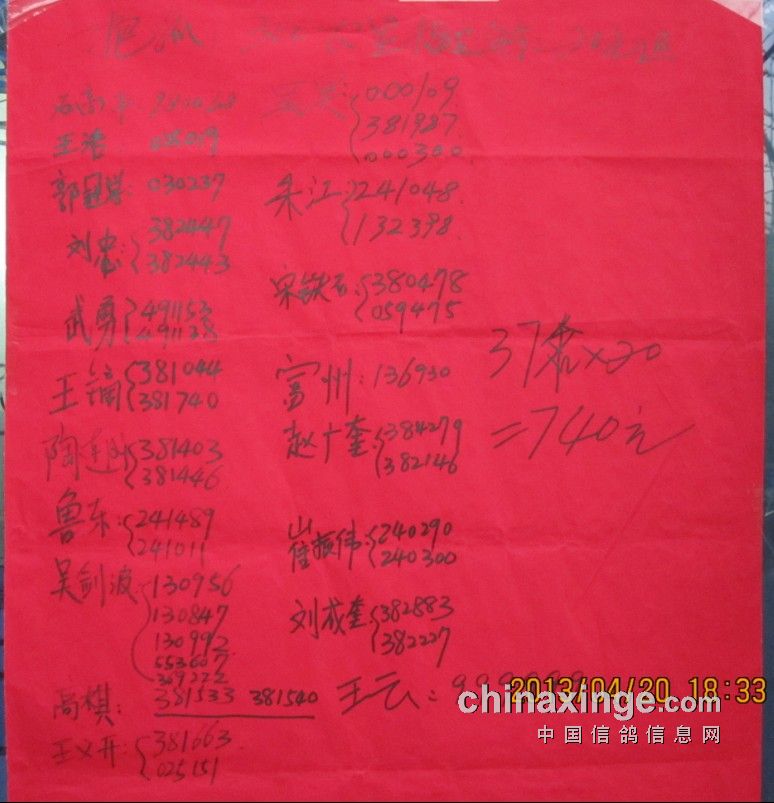 王浩:
郭冠英: 030237
刘忠: 382447
382443
武勇 491153
491128
王镝 381044
381740
381403
381446
鲁东: 241489
241011
吴剑波 130956
130847
130992
553607
369222
尚棋: 381533 381540
王义开: 381663
025151
000109
381987
000300
朱江: 241048
132398
宋铁石: 380478
059475
富州: 136930
赵广奎: 384279
382146
崔振伟: 240290
240300
刘成奎: 382883
382227
王云:
37羽×20
=740元
2013/04/20 18:33
chinaxinge.com
中国信鸽信息网